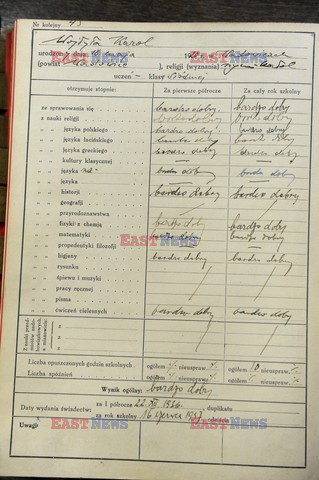 Nr kolejny 43
Wojtyła Karol
urodzony dnia 1920 w Wadowicach
(powiat), religji (wyznania) rzym. katol.
uczeń — klasy siódmej
otrzymuje stopnie: Za pierwsze półrocze Za cały rok szkolny
za sprawowanie się bardzo dobry bardzo dobry
z nauki religji bardzo dobry bardzo dobry
„ „ języka polskiego bardzo dobry bardzo dobry
„ „ języka łacińskiego bardzo dobry bardzo dobry
„ „ języka greckiego bardzo dobry bardzo dobry
„ „ kultury klasycznej — —
„ „ języka niem. bardzo dobry bardzo dobry
„ „ języka
„ „ historji bardzo dobry bardzo dobry
„ „ geografji
„ „ przyrodoznawstwa
„ „ fizyki z chemją bardzo dobry bardzo dobry
„ „ matematyki bardzo dobry bardzo dobry
„ „ propedeutyki filozofji — —
„ „ higjeny bardzo dobry bardzo dobry
„ „ rysunku
„ „ śpiewu i muzyki
„ „ pracy ręcznej
„ „ pisma
„ „ ćwiczeń cielesnych bardzo dobry bardzo dobry
Liczba opuszczonych godzin szkolnych ogółem nieuspraw. ogółem 10 nieuspraw.
Liczba spóźnień ogółem nieuspraw. ogółem nieuspraw.
Wynik ogólny: bardzo dobry
Daty wydania świadectw: za I półrocze 22 XII 1936, duplikatu
za rok szkolny 16 czerwca 1937
Uwagi
EAST NEWS
EAST NEWS
EAST NEWS
EAST NEWS
EAST NEWS
EAST NEWS